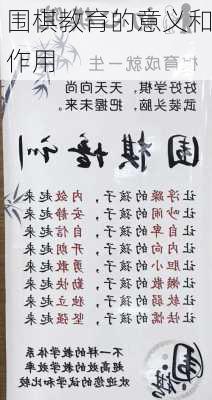 围棋教育的意义和
作用
育成就一生
天天向上
武装头脑，把握未来
围棋
让浮躁的孩子，内敛起来
让吵闹的孩子，安静起来
让自卑的孩子，自信起来
让内向的孩子，开朗起来
让胆小的孩子，勇敢起来
让懒散的孩子，勤快起来
让软弱的孩子，独立起来
让怯懦的孩子，坚强起来
不一样的教学体系
高效的教学效率
欢迎您的试学和比较
围棋